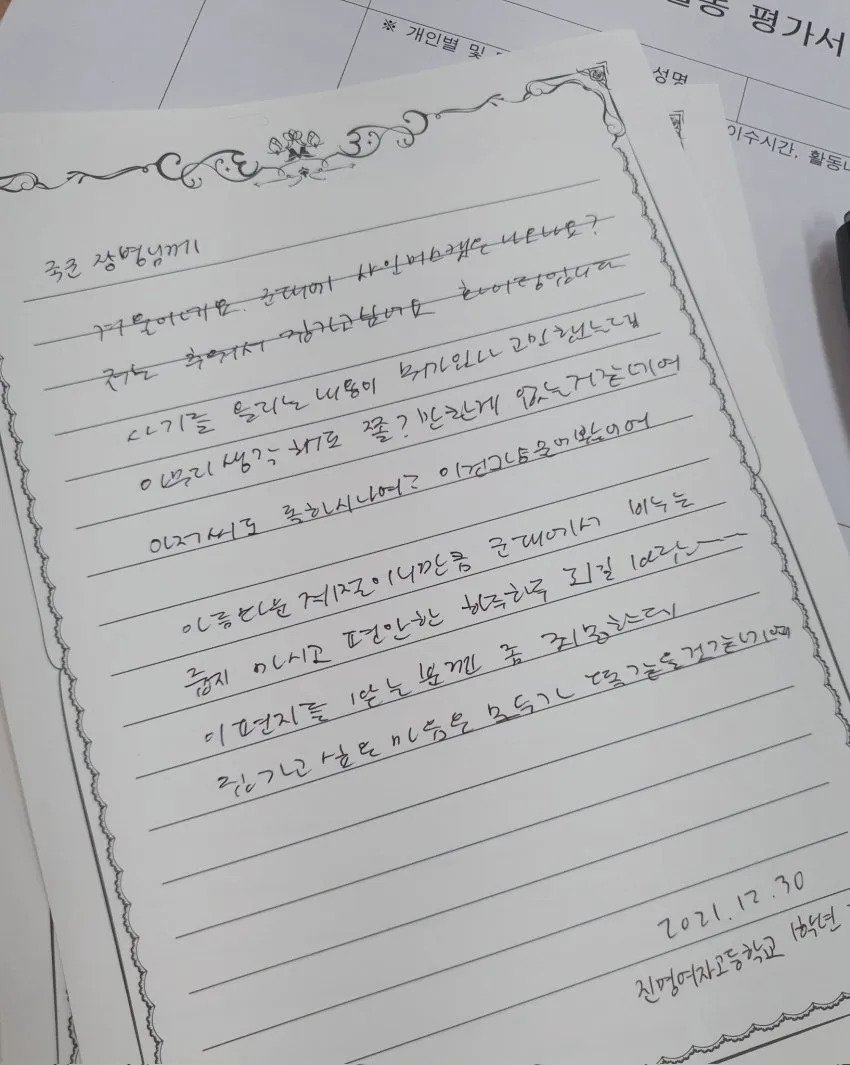 활동 평가서
※ 개인별 및
성명
이수시간, 활동내
국군 장병님께
겨울이네요. 군대에 샤인머스캣은 나오나요?
저는 추워서 집가고싶네요 화이팅입니다
사기를 올리는 내용이 뭐가있나 고민했는데
아무리 생각해도 쫄?만한게 없는거같네여
아저씨도 롤하시나여?
아름다운 계절이니만큼 군대에서 비누는
줍지 마시고 편안한 하루하루 되길 바랍니다
이 편지를 받는분껜 좀 죄송한데
집가고싶은 마음은 모두가 똑같을것같네여
2021.12.30
진명여자고등학교 1학년